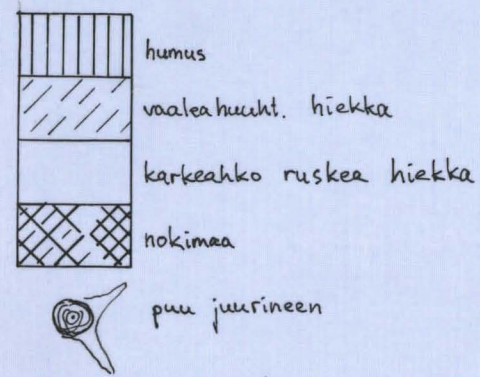 humus
vaaleahuuht. hiekka
karkeahko ruskea hiekka
nokimaa
puu juurineen